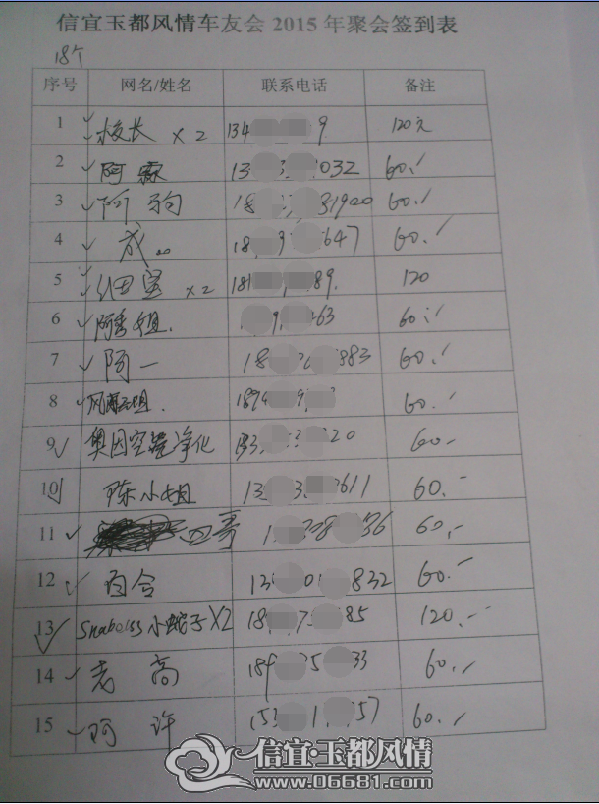 信宜玉都风情车友会 2015 年聚会签到表
18个
序号 网名/姓名 联系电话 备注
1 校长 x2 134 9 120元
2 阿霖 13 3 032 60.-
3 阿 狗 18 31900 60.-
4 成 18 9 647 60.-
5 x2 18 89. 120
6 阿秀姐. 9 463 60.-
7 阿一 18 883 60.-
8 1894 9 60.-
9 奥因空气净化 133 3 20 60.-
10 陈小姐 13 3 0611 60.-
11 四哥 1 8 36 60.-
12 百合 13 0 832 60.-
13 小蛇子 X2 18 7 85 120.-
14 老高 189 5 33 60.-
15 阿 许 153 1 57 60.-
信宜·玉都风情
www.06681.com